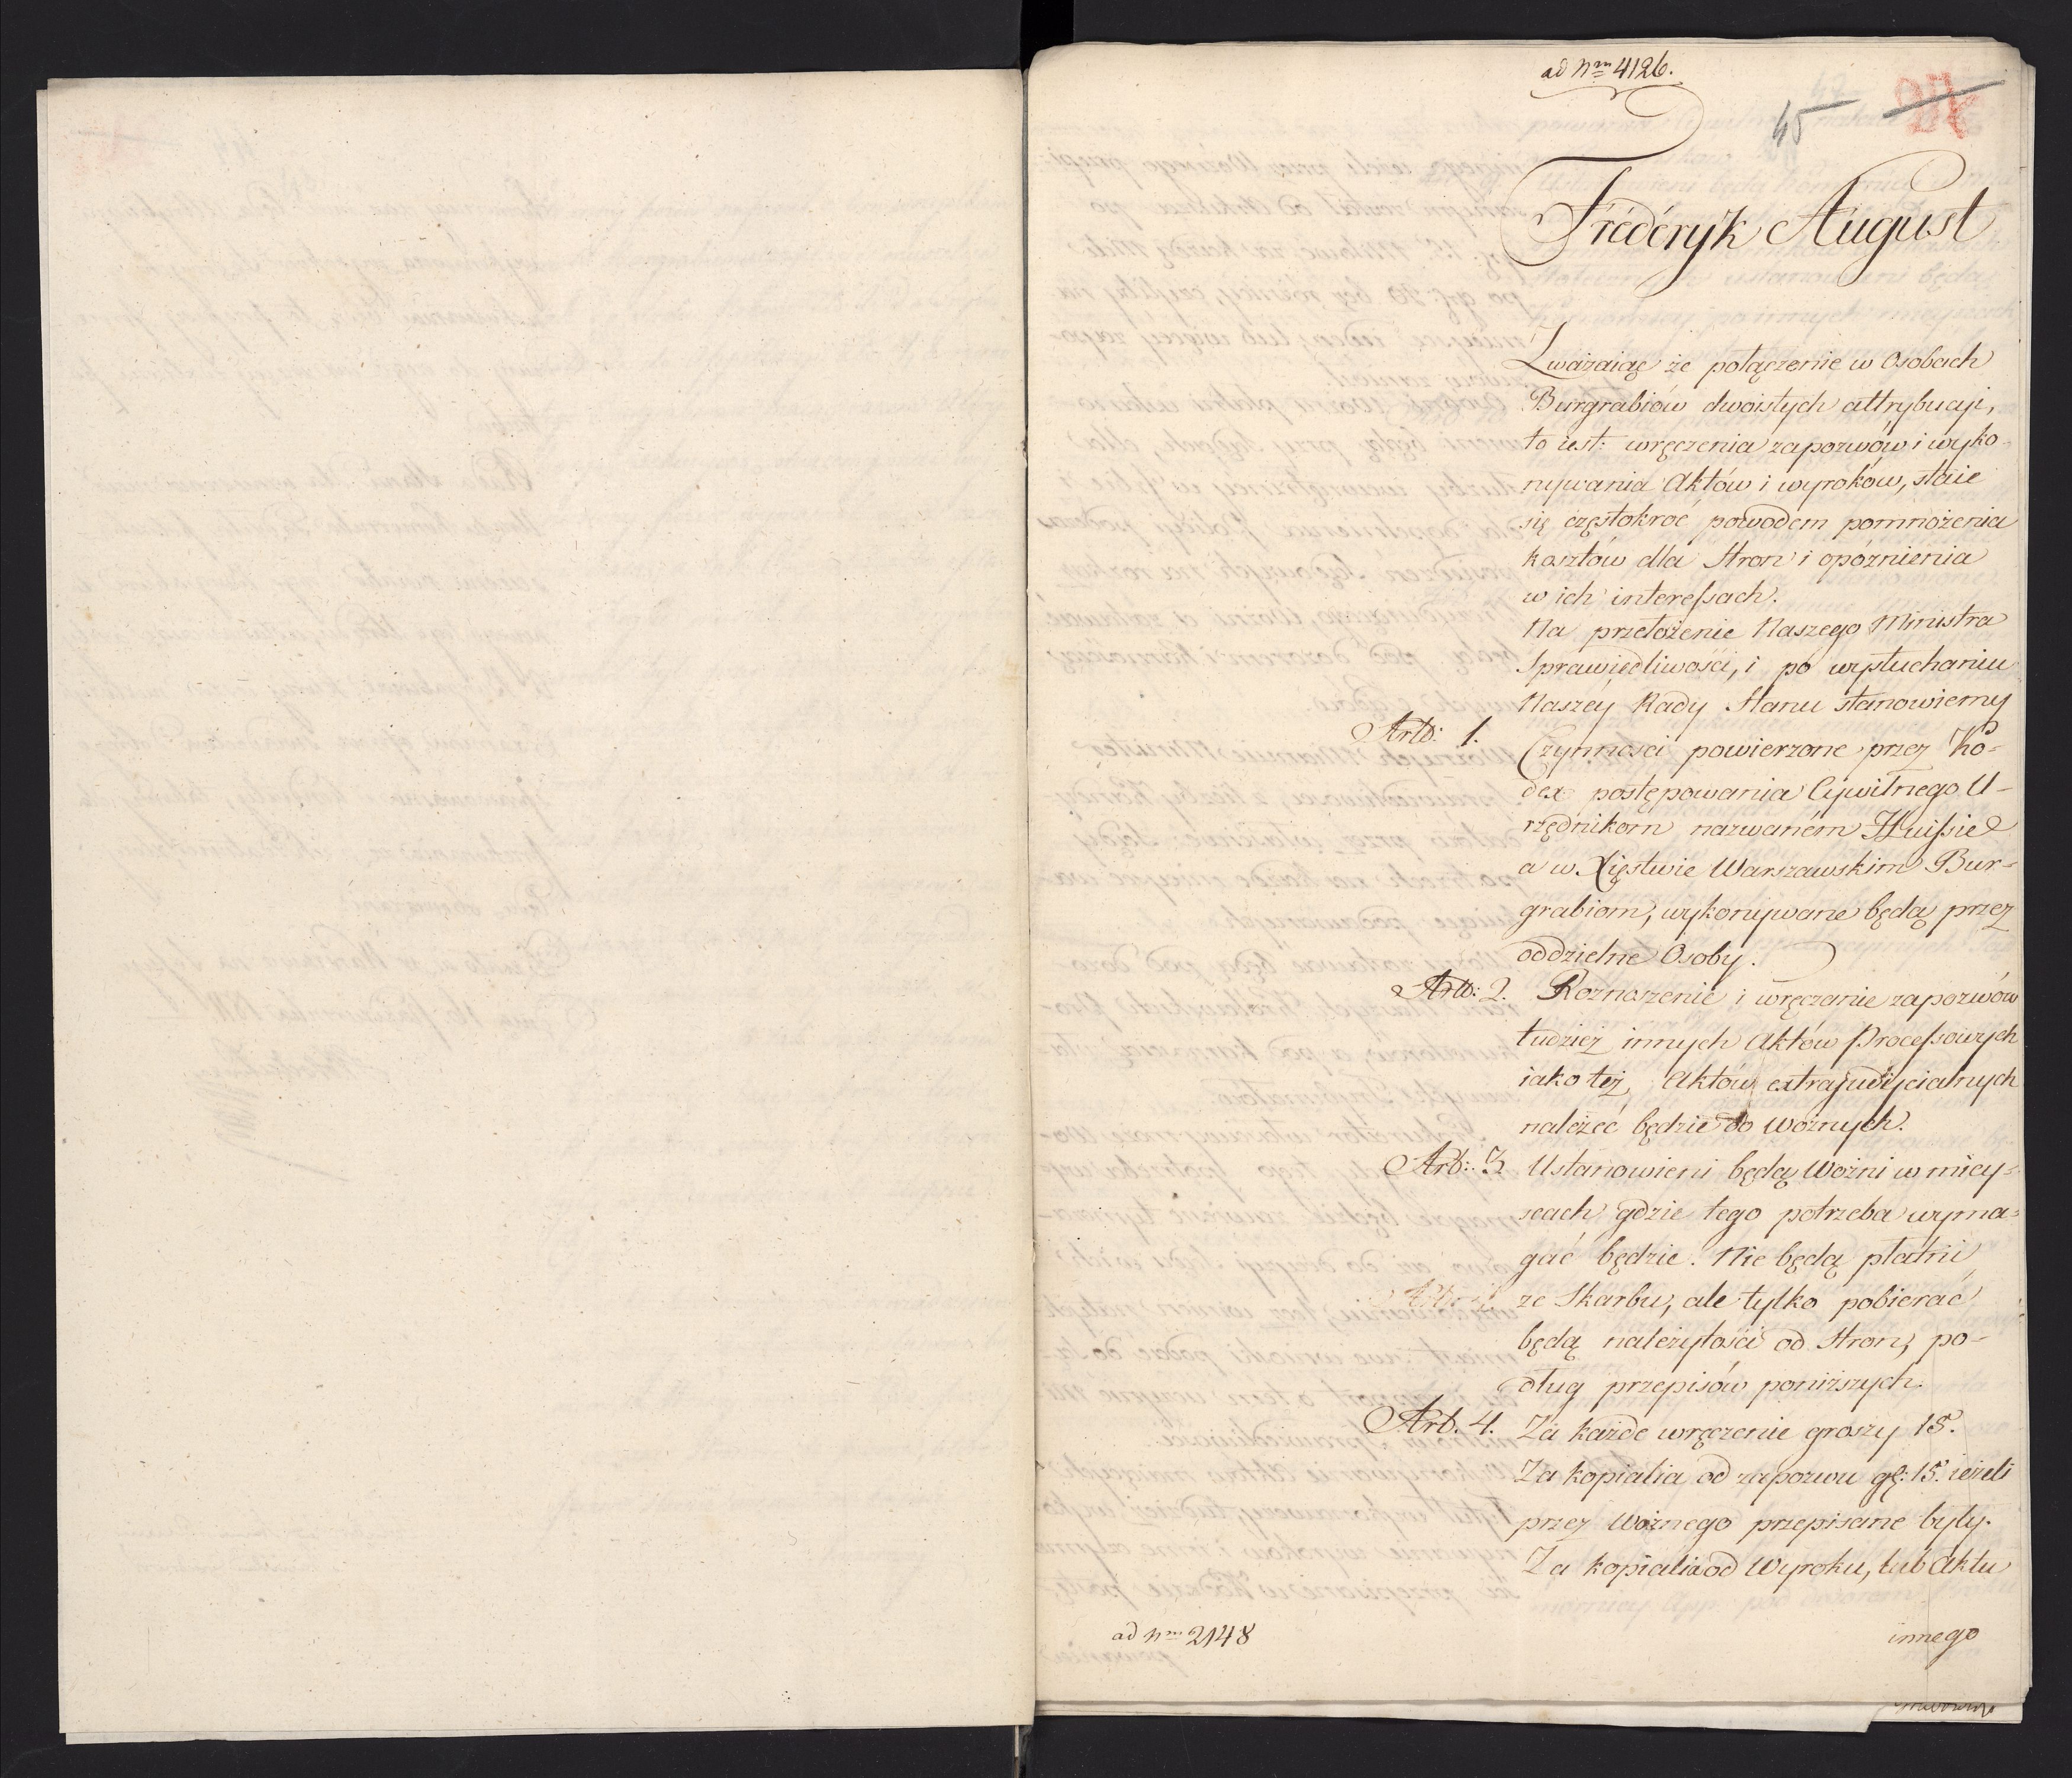 ad Nrm 4126.
45
Fréderyk August
Zważaiąc że połączenie w Osobach
Burgrabiów dwoistych attrybucji,
to iest: wręczenia zapozwów i wyko-
nywania Aktów i wyroków, staie
się częstokroć powodem pomnożenia
kosztów dla Stron i opóznienia
w ich interessach.
Na przełożenie Naszego Ministra
Sprawiedliwości, i po wysłuchaniu
Naszéy Rady Stanu stanowiemy
Art: 1. Czynnosci powierzone przez Ko-
dex postępowania Cywilnego U-
rzędnikom nazwaném Huissie
a w Xięstwie Warszawskim Bur-
grabiom, wykonywane będą przez
oddzielne Osoby.
Art: 2. Roznoszenie i wręczanie zapozwów
tudzież innych Aktów Processowych
iako też, Aktów extrajudycialnych
należéć będzie do Woźnych.
Art: 3 Ustanowieni będą Woźni w miey-
scach gdzie tego potrzeba wyma-
gać będzie. Nie będą płatni
ze Skarbu, ale tylko pobierać
będą należytości od Stron, po-
dług przepisów poniższych.
Art. 4. Za każde wręczenie groszy 15.
Za kopialia od zapozwu gr: 15. ieżeli
przez Woźnego przepisane były.
Za kopialia od Wyroku, lub Aktu
ad Nrm 2148
innego